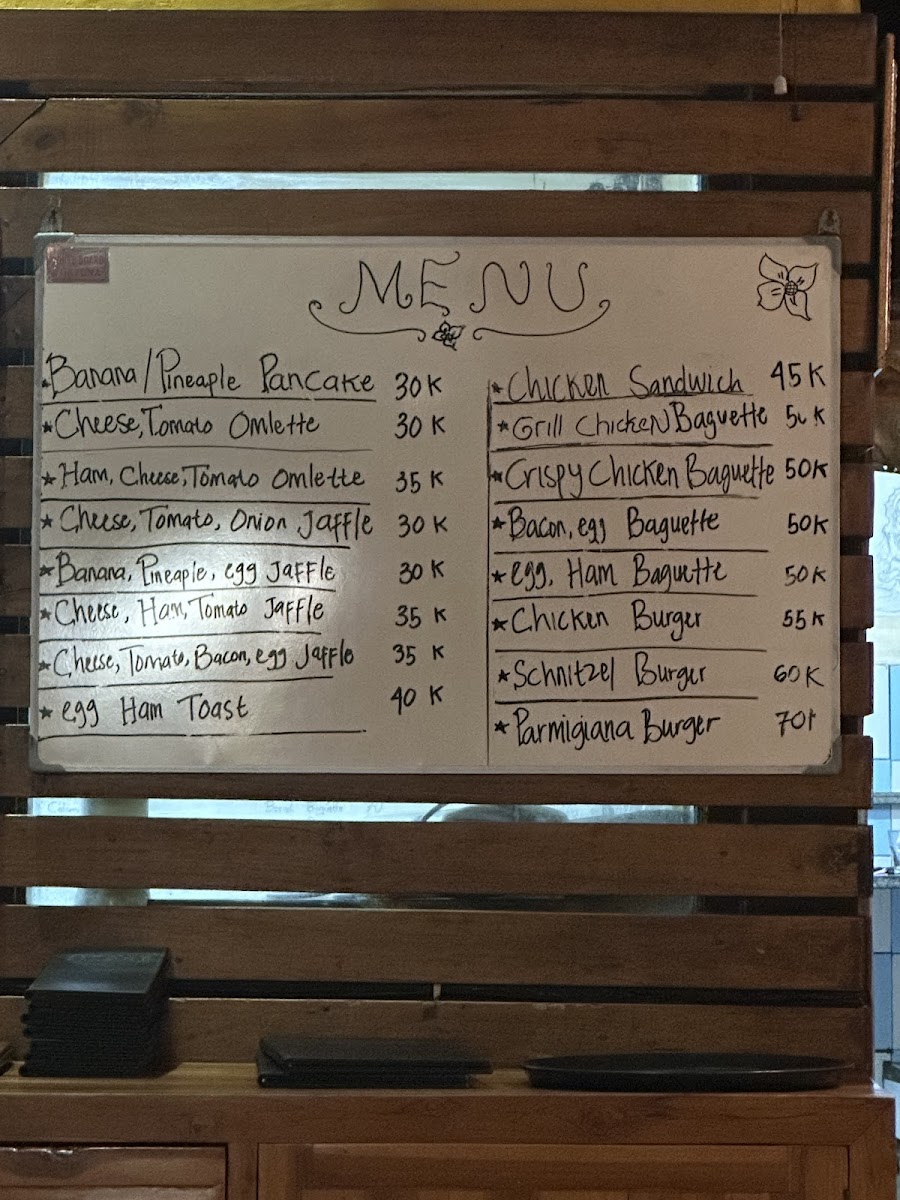 MENU
Banana/Pineaple Pancake 30K
Cheese, Tomato Omlette 30K
Ham, Cheese, Tomato Omlette 35K
Cheese, Tomato, Onion Jaffle 30K
Banana, Pineaple, egg Jaffle 30K
Cheese, Ham, Tomato Jaffle 35K
Cheese, Tomato, Bacon, egg Jaffle 35K
egg Ham Toast 40K
Chicken Sandwich 45K
Grill Chicken Baguette 50K
Crispy Chicken Baguette 50K
Bacon, egg Baguette 50K
egg, Ham Baguette 50K
Chicken Burger 55K
Schnitzel Burger 60K
Parmigiana Burger 70K